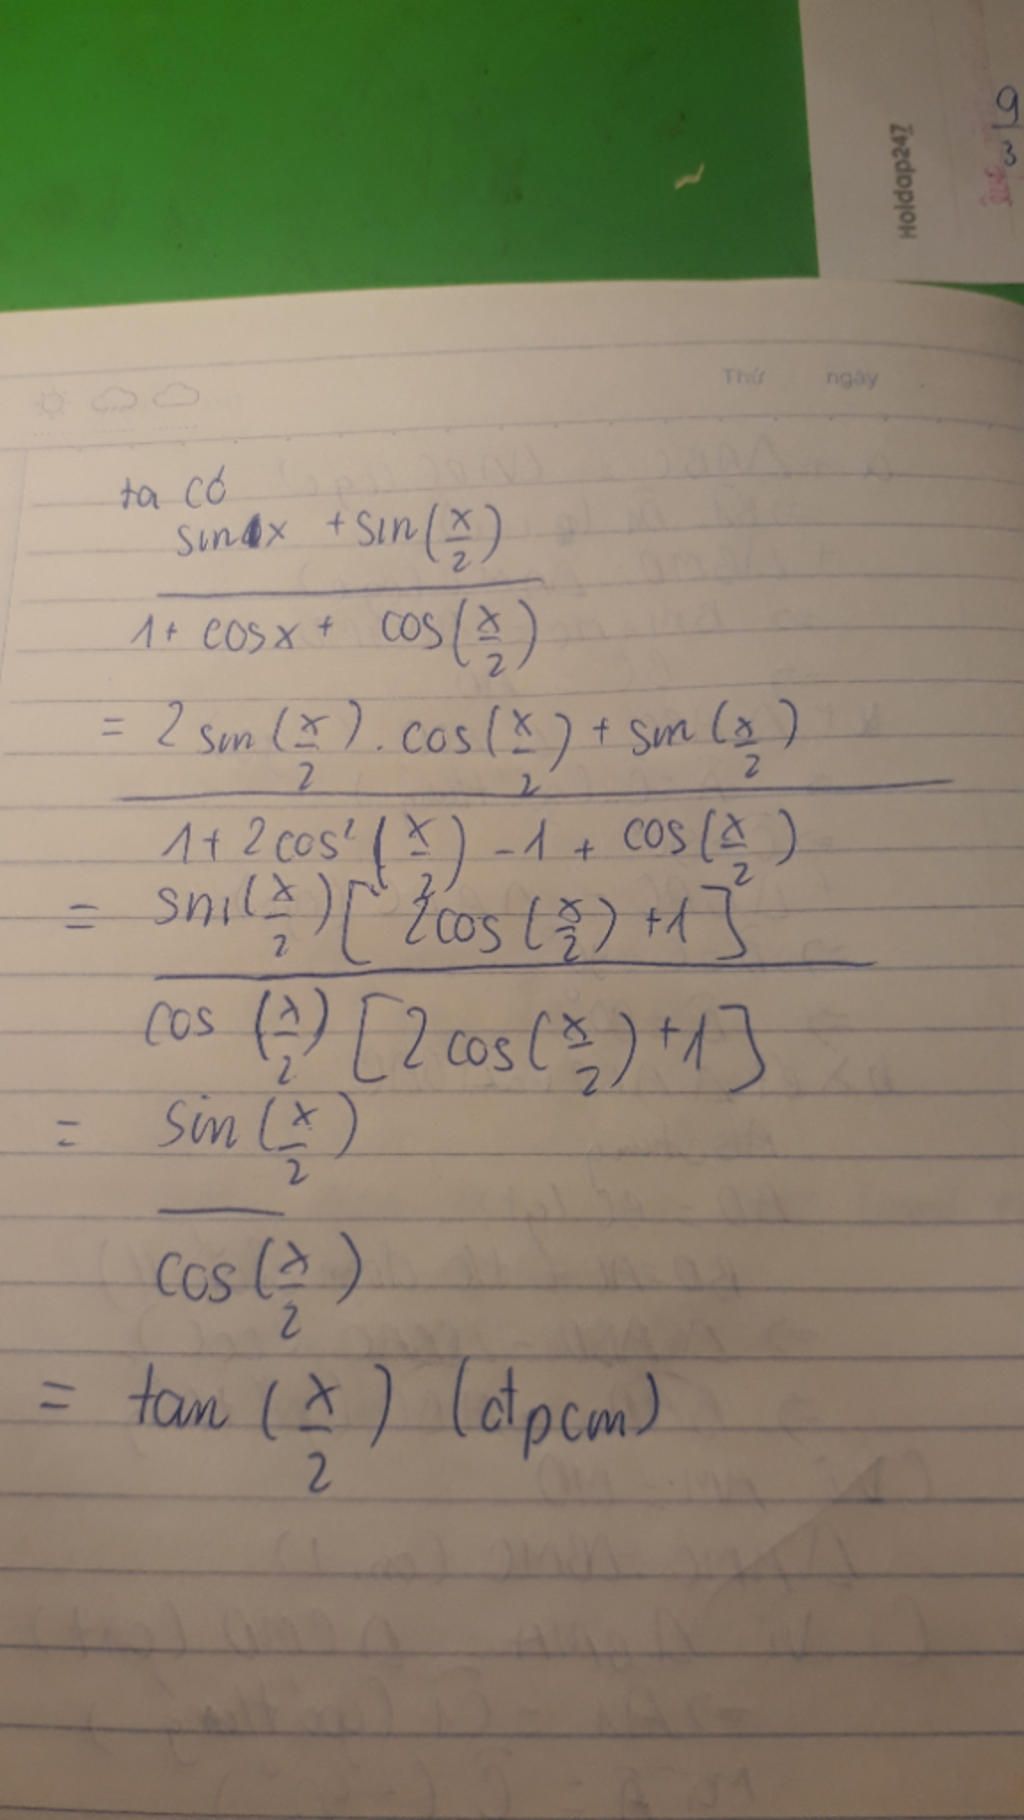 Hoidap247
9
3
Thứ ngày
ta có
sin x + sin(x/2)
1 + cosx + cos(x/2)
= 2 sin(x/2) . cos(x/2) + sin(x/2)
1 + 2cos²(x/2) - 1 + cos(x/2)
= sin(x/2) [2cos(x/2) + 1]
cos(x/2) [2cos(x/2) + 1]
= sin(x/2)
cos(x/2)
= tan(x/2) (đpcm)